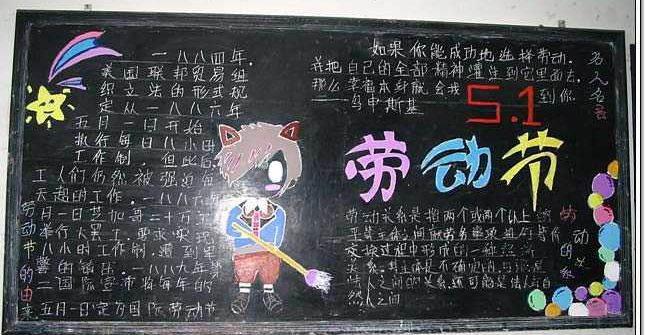 一八八四年,
美国联邦贸易组
织立法的形式规
定从一八八六年
五月一日开始
执行每日八小时
工作制,但此后
工人们仍然被强迫每
天超的工作。一八八六年
五月一日芝加哥二十万工
人举行大罢工,要求实现
八小时工作制,遭到军
警的镇压。一八八九年第
二国际宣布将每年的
五月一日定为国际劳动节
劳动节的由来
如果你能成功地选择劳动,
并把自己的全部精神灌注到它里面去,
那么幸福本身就会找到你
——乌申斯基
名人名言
5.1
劳动节
劳动关系是指两个或两个以上的
交换过程中形成的一种经济
关系,其主体是不确定的,可能是
法人之间的关系,还可能是法人与自
然人之间